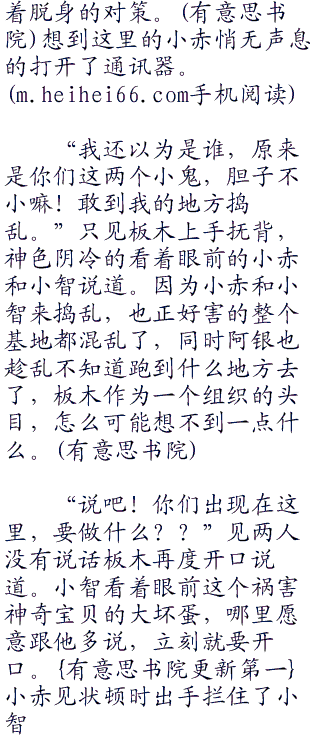 着脱身的对策。(有意思书
院)想到这里的小赤悄无声息
的打开了通讯器。
(m.heihei66.com手机阅读)
“我还以为是谁，原来
是你们这两个小鬼，胆子不
小嘛！敢到我的地方捣
乱。”只见板木上手抚背，
神色阴冷的看着眼前的小赤
和小智说道。因为小赤和小
智来捣乱，也正好害的整个
基地都混乱了，同时阿银也
趁乱不知道跑到什么地方去
了，板木作为一个组织的头
目，怎么可能想不到一点什
么。(有意思书院)
“说吧！你们出现在这
里，要做什么？？”见两人
没有说话板木再度开口说
道。小智看着眼前这个祸害
神奇宝贝的大坏蛋，哪里愿
意跟他多说，立刻就要开
口。{有意思书院更新第一}
小赤见状顿时出手拦住了小
智